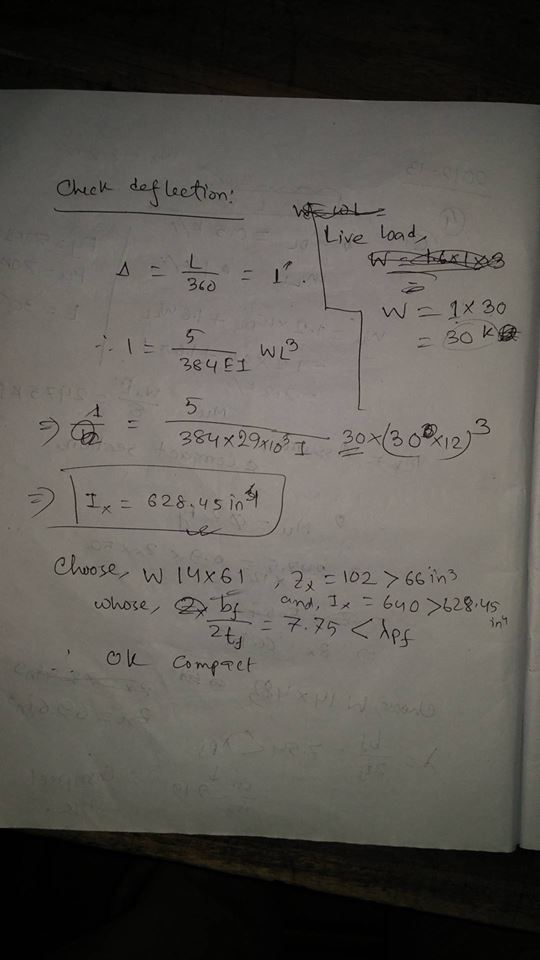 Check deflection:
Δ = L/360 = 1".
Live load,
W = 1.6×1×3
W = 1 × 30
= 30 K
∴ 1 = 5/384EI WL³
⇒ 1 = 5/384×29×10³ I 30×(30×12)³
⇒ Iₓ = 628.45 in⁴
Choose, W 14×61 , Zₓ = 102 > 66 in³
and, Iₓ = 640 > 628.45 in⁴
whose, bf/2tf = 7.75 < λpf
∴ OK Compact